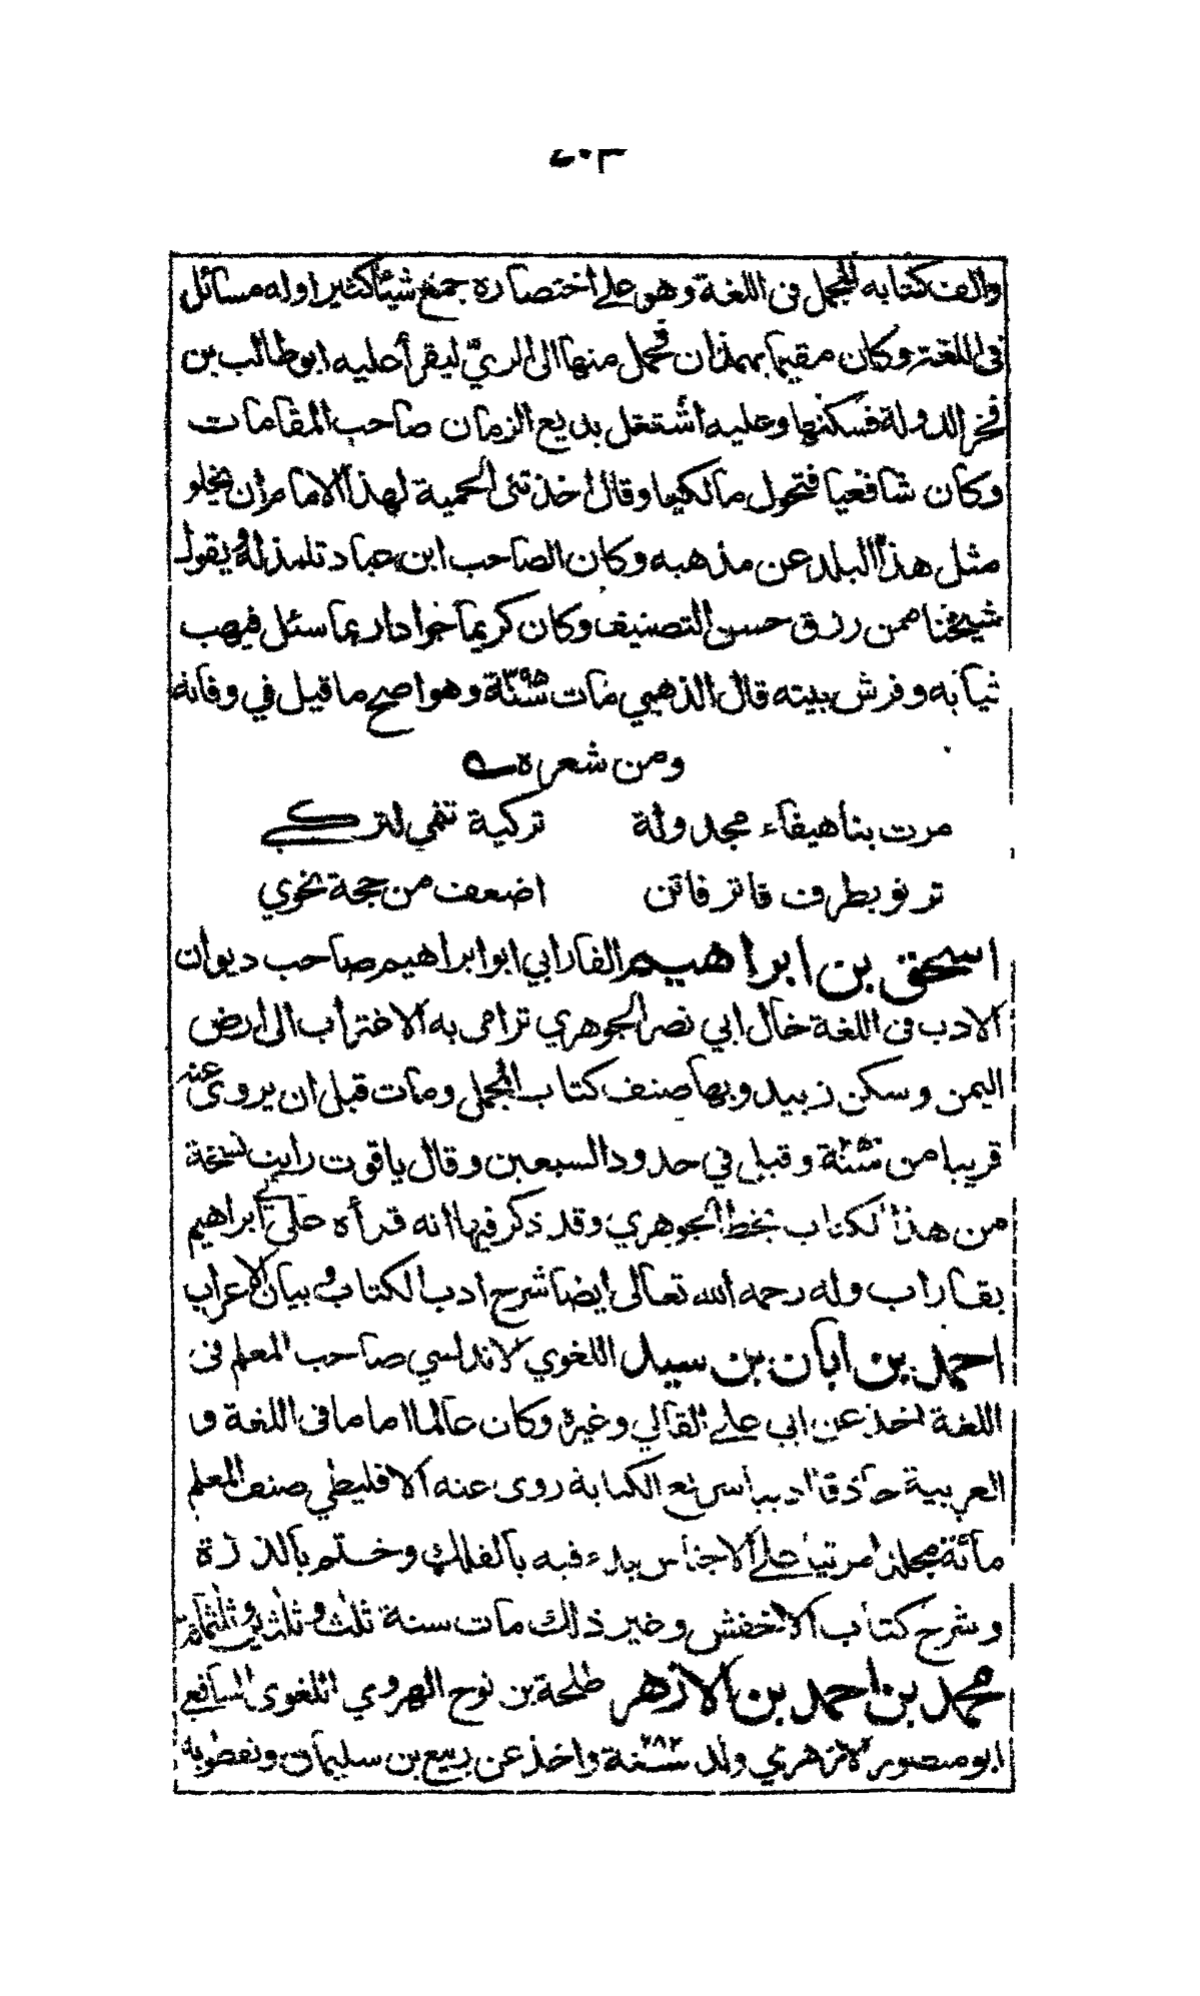 والف كتابه المجمل فى اللغة وهو على اختصاره جمع شيئا كثيرا وله مسائل
فى اللغة وكان مقيما بهمذان فحمل منها الى الريّ ليقرأ عليه ابو طالب بن
فخر الدولة فسكنها وعليه اشتغل بديع الزمان صاحب المقامات
وكان شافعيا فتحول مالكيا وقال اخذتنى الحمية لهذا الامام ان يخلو
مثل هذا البلد عن مذهبه وكان الصاحب ابن عباد تلمذ له ويقول
شيخنا ممن رزق حسن التصنيف وكان كريما جوادا ربما سئل فيهب
ثيابه وفرش بيته قال الذهبي مات سنة ٣٩٥ وهو اصح ما قيل في وفاته
ومن شعره
مرت بنا هيفاء مجدولة تركية تنمي لتركي
ترنو بطرف فاتر فاتن اضعف من حجة نحوي
اسحق بن ابراهيم الفارابي ابو ابراهيم صاحب ديوان
الادب فى اللغة خال ابي نصر الجوهري ترامى به الاغتراب الى ارض
اليمن وسكن زبيد وبها صنف كتاب المجمل ومات قبل ان يروى عنه
قريبا من سنة وقيل في حدود السبعين وقال ياقوت رايت نسخة
من هذا الكتاب بخط الجوهري وقد ذكر فيها انه قرأه على ابراهيم
بفاراب وله رحمه الله تعالى ايضا شرح ادب الكتاب وبيان الاعراب
احمد بن ابان بن سيد اللغوي الاندلسي صاحب المعلم فى
اللغة اخذ عن ابي علي القالي وغيره وكان عالما اماما فى اللغة و
العربية حاذقا اديبا سريع الكتابة روى عنه الافليلي صنف المعلم
مائة مجلد مرتبا على الاجناس بدء فيه بالفلك وختم بالذرة
وشرح كتاب الاخفش وغير ذلك مات سنة ثلث وثلثين وثلثمائة
محمد بن احمد بن الازهر طلحة بن نوح الهروي اللغوى الشافعي
ابو منصور الازهري ولد سنة ٢٨٢ واخذ عن ربيع بن سليمان ونفطويه